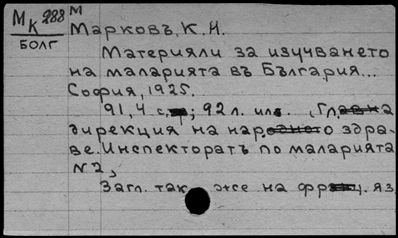 МК 288
БОЛГ
М
Марковъ, К. Н.
Материяли за изучването
на маларията въ България...
София, 1925.
91, 4 с.; 92 л. ил. (Главна
дирекция на народното здра-
ве. Инспекторатъ по маларията
N 2)
Загл. так же на франц. яз